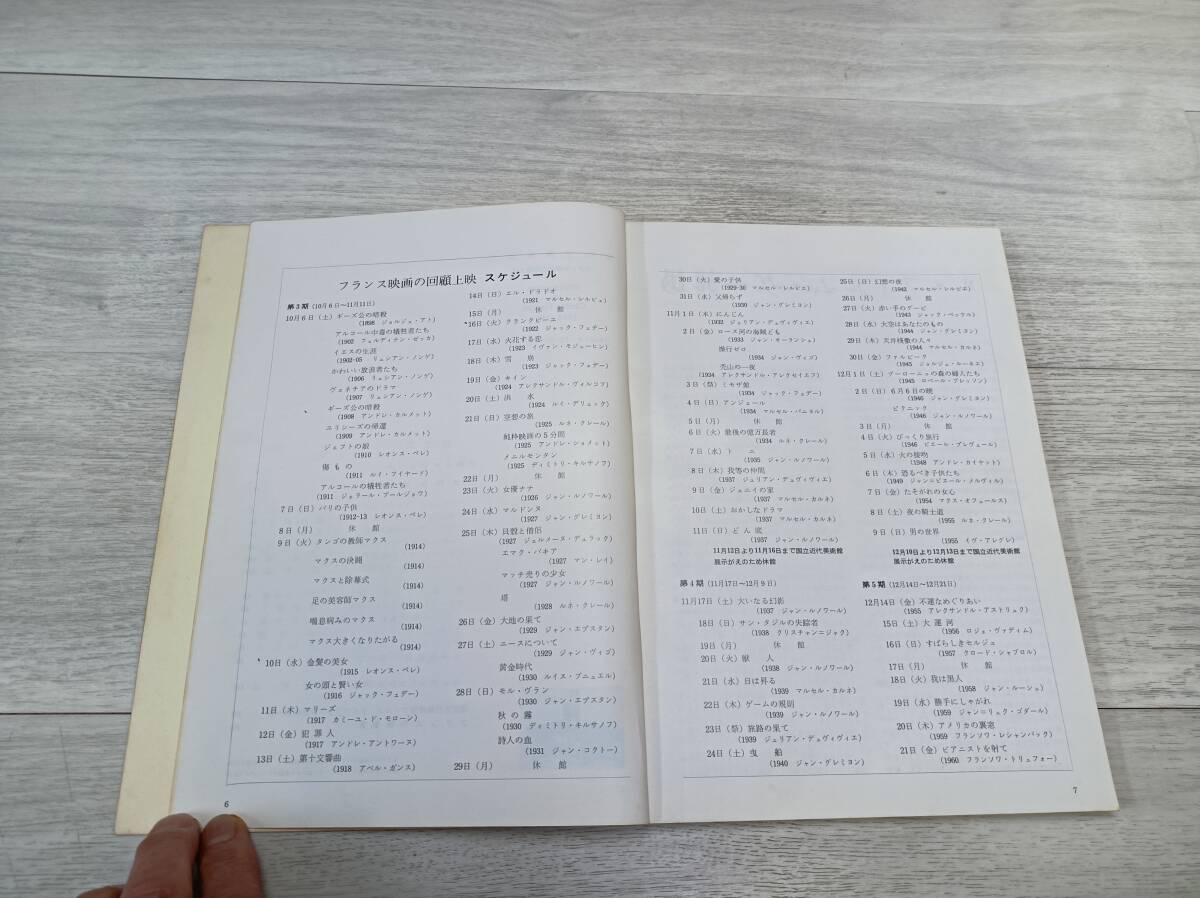 フランス映画の回顧上映 スケジュール
第3期 (10月6日〜11月11日)
10月6日(土)ギーズ公の暗殺
(1898 ジョルジュ・アト)
アルコール中毒の犠牲者たち
(1902 フェルディナン・ゼッカ)
イエスの生涯
(1902-05 リュシアン・ノンゲ)
かわいい放浪者たち
(1906 リュシアン・ノンゲ)
ヴェネチアのドラマ
(1907 リュシアン・ノンゲ)
ギーズ公の暗殺
(1908 アンドレ・カルメット)
ユリシーズの帰還
(1909 アンドレ・カルメット)
ジェフトの娘
(1910 レオンス・ペレ)
傷もの
(1911 ルイ・フイヤード)
アルコールの犠牲者たち
(1911 ジョラール・ブールジョワ)
7日(日)パリの子供
(1912-13 レオンス・ペレ)
8日(月) 休 館
9日(火)タンゴの教師マクス
(1914)
マクスの決闘
(1914)
マクスと除幕式
(1914)
足の美容師マクス
(1914)
喘息病みのマクス
(1914)
マクス大きくなりたがる
(1914)
10日(水)金髪の美女
(1915 レオンス・ペレ)
女の頭と賢い女
(1916 ジャック・フェデー)
11日(木)マリーズ
(1917 カミーユ・ド・モローン)
12日(金)犯罪人
(1917 アンドレ・アントワーヌ)
13日(土)第十交響曲
(1918 アベル・ガンス)
14日(日)エル・ドラドオ
(1921 マルセル・レルビエ)
15日(月) 休 館
16日(火)クランクビーユ
(1922 ジャック・フェデー)
17日(水)火花する恋
(1923 イヴァン・モジューヒン)
18日(木)雪 崩
(1923 ジャック・フェデー)
19日(金)キイン
(1924 アレクサンドル・ヴォルコフ)
20日(土)洪 水
(1924 ルイ・デリュック)
21日(日)空想の旅
(1925 ルネ・クレール)
純粋映画の5分間
(1925 アンドレ・ショメット)
メニルモンタン
(1925 ディミトリ・キルサノフ)
22日(月) 休 館
23日(火)女優ナナ
(1926 ジャン・ルノワール)
24日(水)マルドンヌ
(1927 ジャン・グレミヨン)
25日(木)貝殻と僧侶
(1927 ジェルメーヌ・デュラック)
エマク・バキア
(1927 マン・レイ)
マッチ売りの少女
(1927 ジャン・ルノワール)
塔
(1928 ルネ・クレール)
26日(金)大地の果て
(1929 ジャン・エプスタン)
27日(土)ニースについて
(1929 ジャン・ヴィゴ)
黄金時代
(1930 ルイス・ブニュエル)
28日(日)モル・ヴラン
(1930 ジャン・エプスタン)
秋の霧
(1930 ディミトリ・キルサノフ)
詩人の血
(1931 ジャン・コクトー)
29日(月) 休 館
6
30日(火)愛の子供
(1929-30 マルセル・レルビエ)
31日(水)父帰らず
(1930 ジャン・グレミヨン)
11月1日(木)にんじん
(1932 ジュリアン・デュヴィヴィエ)
2日(金)ローヌ河の海賊ども
(1933 ジャン・オーランシュ)
操行ゼロ
(1934 ジャン・ヴィゴ)
禿山の一夜
(1934 アレクサンドル・アレクセイエフ)
3日(祭)ミモザ館
(1934 ジャック・フェデー)
4日(日)アンジェール
(1934 マルセル・パニョル)
5日(月) 休 館
6日(火)最後の億万長者
(1934 ルネ・クレール)
7日(水)トニ
(1935 ジャン・ルノワール)
8日(木)我等の仲間
(1937 ジュリアン・デュヴィヴィエ)
9日(金)ジェニイの家
(1937 マルセル・カルネ)
10日(土)おかしなドラマ
(1937 マルセル・カルネ)
11日(日)どん底
(1937 ジャン・ルノワール)
11月12日より11月16日まで国立近代美術館
展示がえのため休館
第4期 (11月17日〜12月9日)
11月17日(土)大いなる幻影
(1937 ジャン・ルノワール)
18日(日)サン・タジルの失踪者
(1938 クリスチャン=ジャク)
19日(月) 休 館
20日(火)獣 人
(1938 ジャン・ルノワール)
21日(水)日は昇る
(1939 マルセル・カルネ)
22日(木)ゲームの規則
(1939 ジャン・ルノワール)
23日(祭)旅路の果て
(1939 ジュリアン・デュヴィヴィエ)
24日(土)曳 船
(1940 ジャン・グレミヨン)
25日(日)幻想の夜
(1942 マルセル・レルビエ)
26日(月) 休 館
27日(火)赤い手のグーピ
(1943 ジャック・ベッケル)
28日(水)大空はあなたのもの
(1944 ジャン・グレミヨン)
29日(木)天井桟敷の人々
(1944 マルセル・カルネ)
30日(金)ファルビーク
(1945 ジョルジュ・ルーキエ)
12月1日(土)ブーローニュの森の婦人たち
(1945 ロベール・ブレッソン)
2日(日)6月6日の暁
(1946 ジャン・グレミヨン)
ピクニック
(1946 ジャン・ルノワール)
3日(月) 休 館
4日(火)びっくり旅行
(1946 ピエール・プレヴェール)
5日(水)火の接吻
(1948 アンドレ・カイヤット)
6日(木)恐るべき子供たち
(1949 ジャン=ピエール・メルヴィル)
7日(金)たそがれの女心
(1954 マクス・オフュールス)
8日(土)夜の騎士道
(1955 ルネ・クレール)
9日(日)男の世界
(1955 イヴ・アレグレ)
12月10日より12月13日まで国立近代美術館
展示がえのため休館
第5期 (12月14日〜12月21日)
12月14日(金)不運なめぐりあい
(1955 アレクサンドル・アストリュク)
15日(土)大運河
(1956 ロジェ・ヴァディム)
16日(日)すばらしきセルジュ
(1957 クロード・シャブロル)
17日(月) 休 館
18日(火)我は黒人
(1958 ジャン・ルーシュ)
19日(水)勝手にしゃがれ
(1959 ジャン=リュック・ゴダール)
20日(木)アメリカの裏窓
(1959 フランソワ・レシャンバック)
21日(金)ピアニストを射て
(1960 フランソワ・トリュフォー)
7